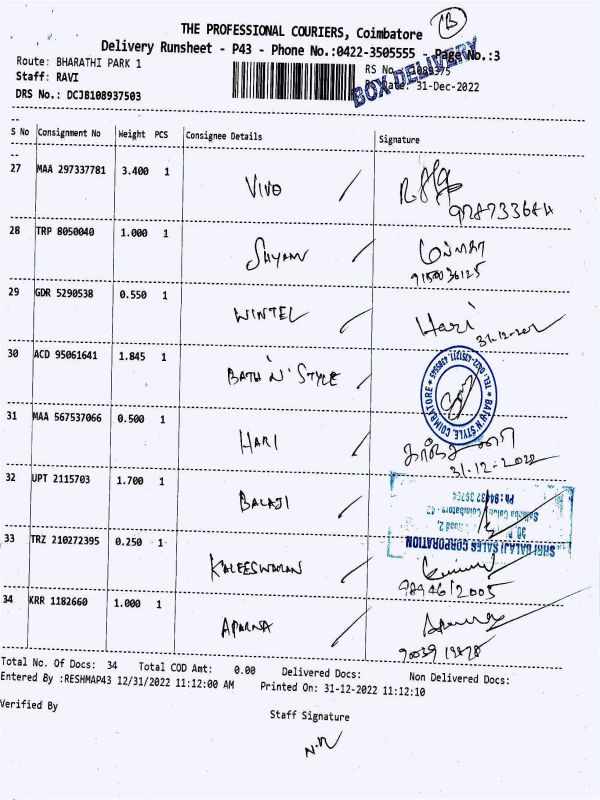 13
THE PROFESSIONAL COURIERS, Coimbatore
Delivery Runsheet - P43 - Phone No.:0422-3505555 - Page No.:3
BOX DELIVERY
Route: BHARATHI PARK 1
Staff: RAVI
RS No
DRS No.: DCJB108937503
Date: 31-Dec-2022
S No Consignment No Weight PCS Consignee Details Signature
27 MAA 297337781 3.400 1 VIVO
28 TRP 8050040 1.000 1 SHYAM
9150036125
29 GDR 5290538 0.550 1 WINTEL Hari
31-12-202
30 ACD 95061641 1.845 1 BATH 'N' STYLE
* BATH'N'STYLE, COIMBATORE *
31 MAA 567537066 0.500 1 HARI
31-12-2022
32 UPT 2115703 1.700 1 BALAJI
SHRI BALAJI SALES CORPORATION
33 TRZ 210272395 0.250 1 KALEESWARAN
98946 12005
34 KRR 1182660 1.000 1 APARNA Aparna
Total No. Of Docs: 34 Total COD Amt: 0.00 Delivered Docs: Non Delivered Docs:
Entered By :RESHMAP43 12/31/2022 11:12:00 AM Printed On: 31-12-2022 11:12:10
Verified By
Staff Signature